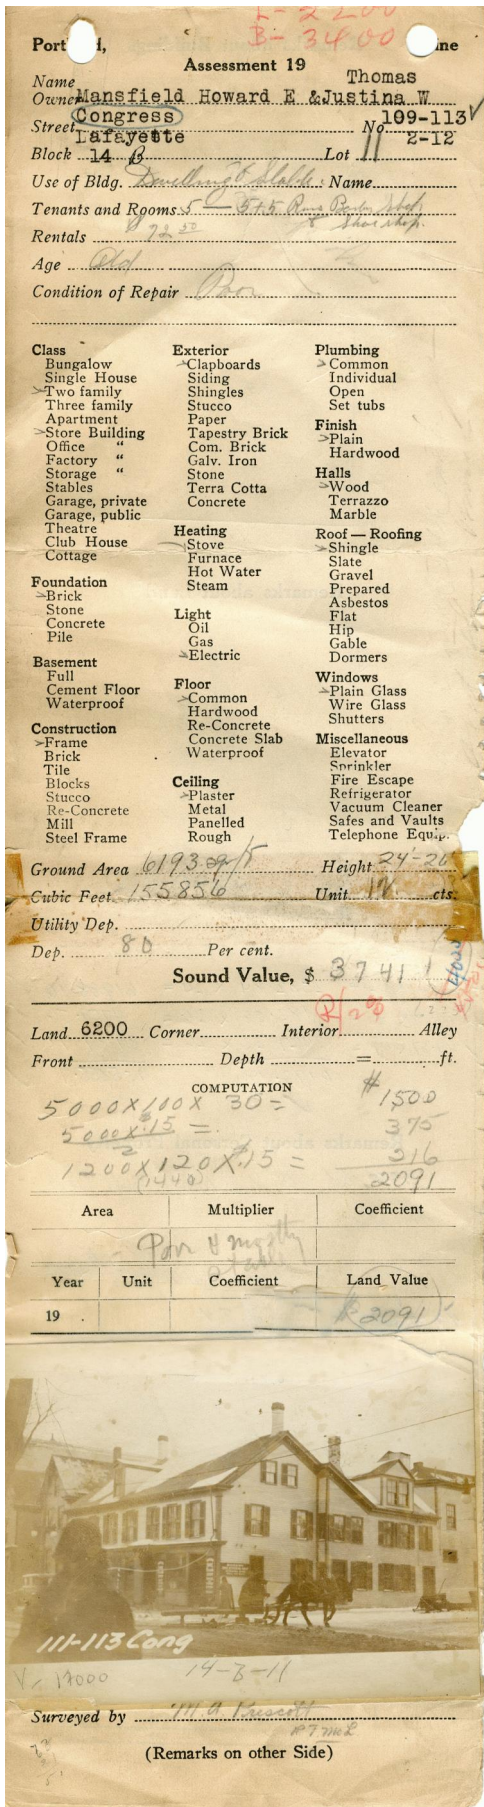 L- 2200
B- 3400
Port d, ine
Assessment 19
Thomas
Name
Owner Mansfield Howard E &Justina W
Street Congress No 109-113
Lafayette 2-12
Block 14 B Lot 11
Use of Bldg. Dwelling & Stable Name
Tenants and Rooms 5 — 5+5 Rms Barber shop
& Shoe shop.
Rentals $72.50
Age Old
Condition of Repair Poor
Class
Bungalow
Single House
Two family
Three family
Apartment
Store Building
Office "
Factory "
Storage "
Stables
Garage, private
Garage, public
Theatre
Club House
Cottage
Foundation
Brick
Stone
Concrete
Pile
Basement
Full
Cement Floor
Waterproof
Construction
Frame
Brick
Tile
Blocks
Stucco
Re-Concrete
Mill
Steel Frame
Exterior
Clapboards
Siding
Shingles
Stucco
Paper
Tapestry Brick
Com. Brick
Galv. Iron
Stone
Terra Cotta
Concrete
Heating
Stove
Furnace
Hot Water
Steam
Light
Oil
Gas
Electric
Floor
Common
Hardwood
Re-Concrete
Concrete Slab
Waterproof
Ceiling
Plaster
Metal
Panelled
Rough
Plumbing
Common
Individual
Open
Set tubs
Finish
Plain
Hardwood
Halls
Wood
Terrazzo
Marble
Roof — Roofing
Shingle
Slate
Gravel
Prepared
Asbestos
Flat
Hip
Gable
Dormers
Windows
Plain Glass
Wire Glass
Shutters
Miscellaneous
Elevator
Sprinkler
Fire Escape
Refrigerator
Vacuum Cleaner
Safes and Vaults
Telephone Equip.
Ground Area 6193 sq ft Height 24-26
Cubic Feet 155856 Unit 12 cts.
Utility Dep.
Dep. 80 Per cent.
Sound Value, $ 3741
Land 6200 Corner Interior Alley
Front Depth = ft.
COMPUTATION
5000 X 100 X 30 = $1500
5000 X .15 = 375
2
1200 X 120 X .15 = 216
(1440) 2091
Area Multiplier Coefficient
Poor & mostly
stable
Year Unit Coefficient Land Value
19 $2091
111-113 Cong
V- 17000 14-B-11
Surveyed by M A Prescott
(Remarks on other Side)